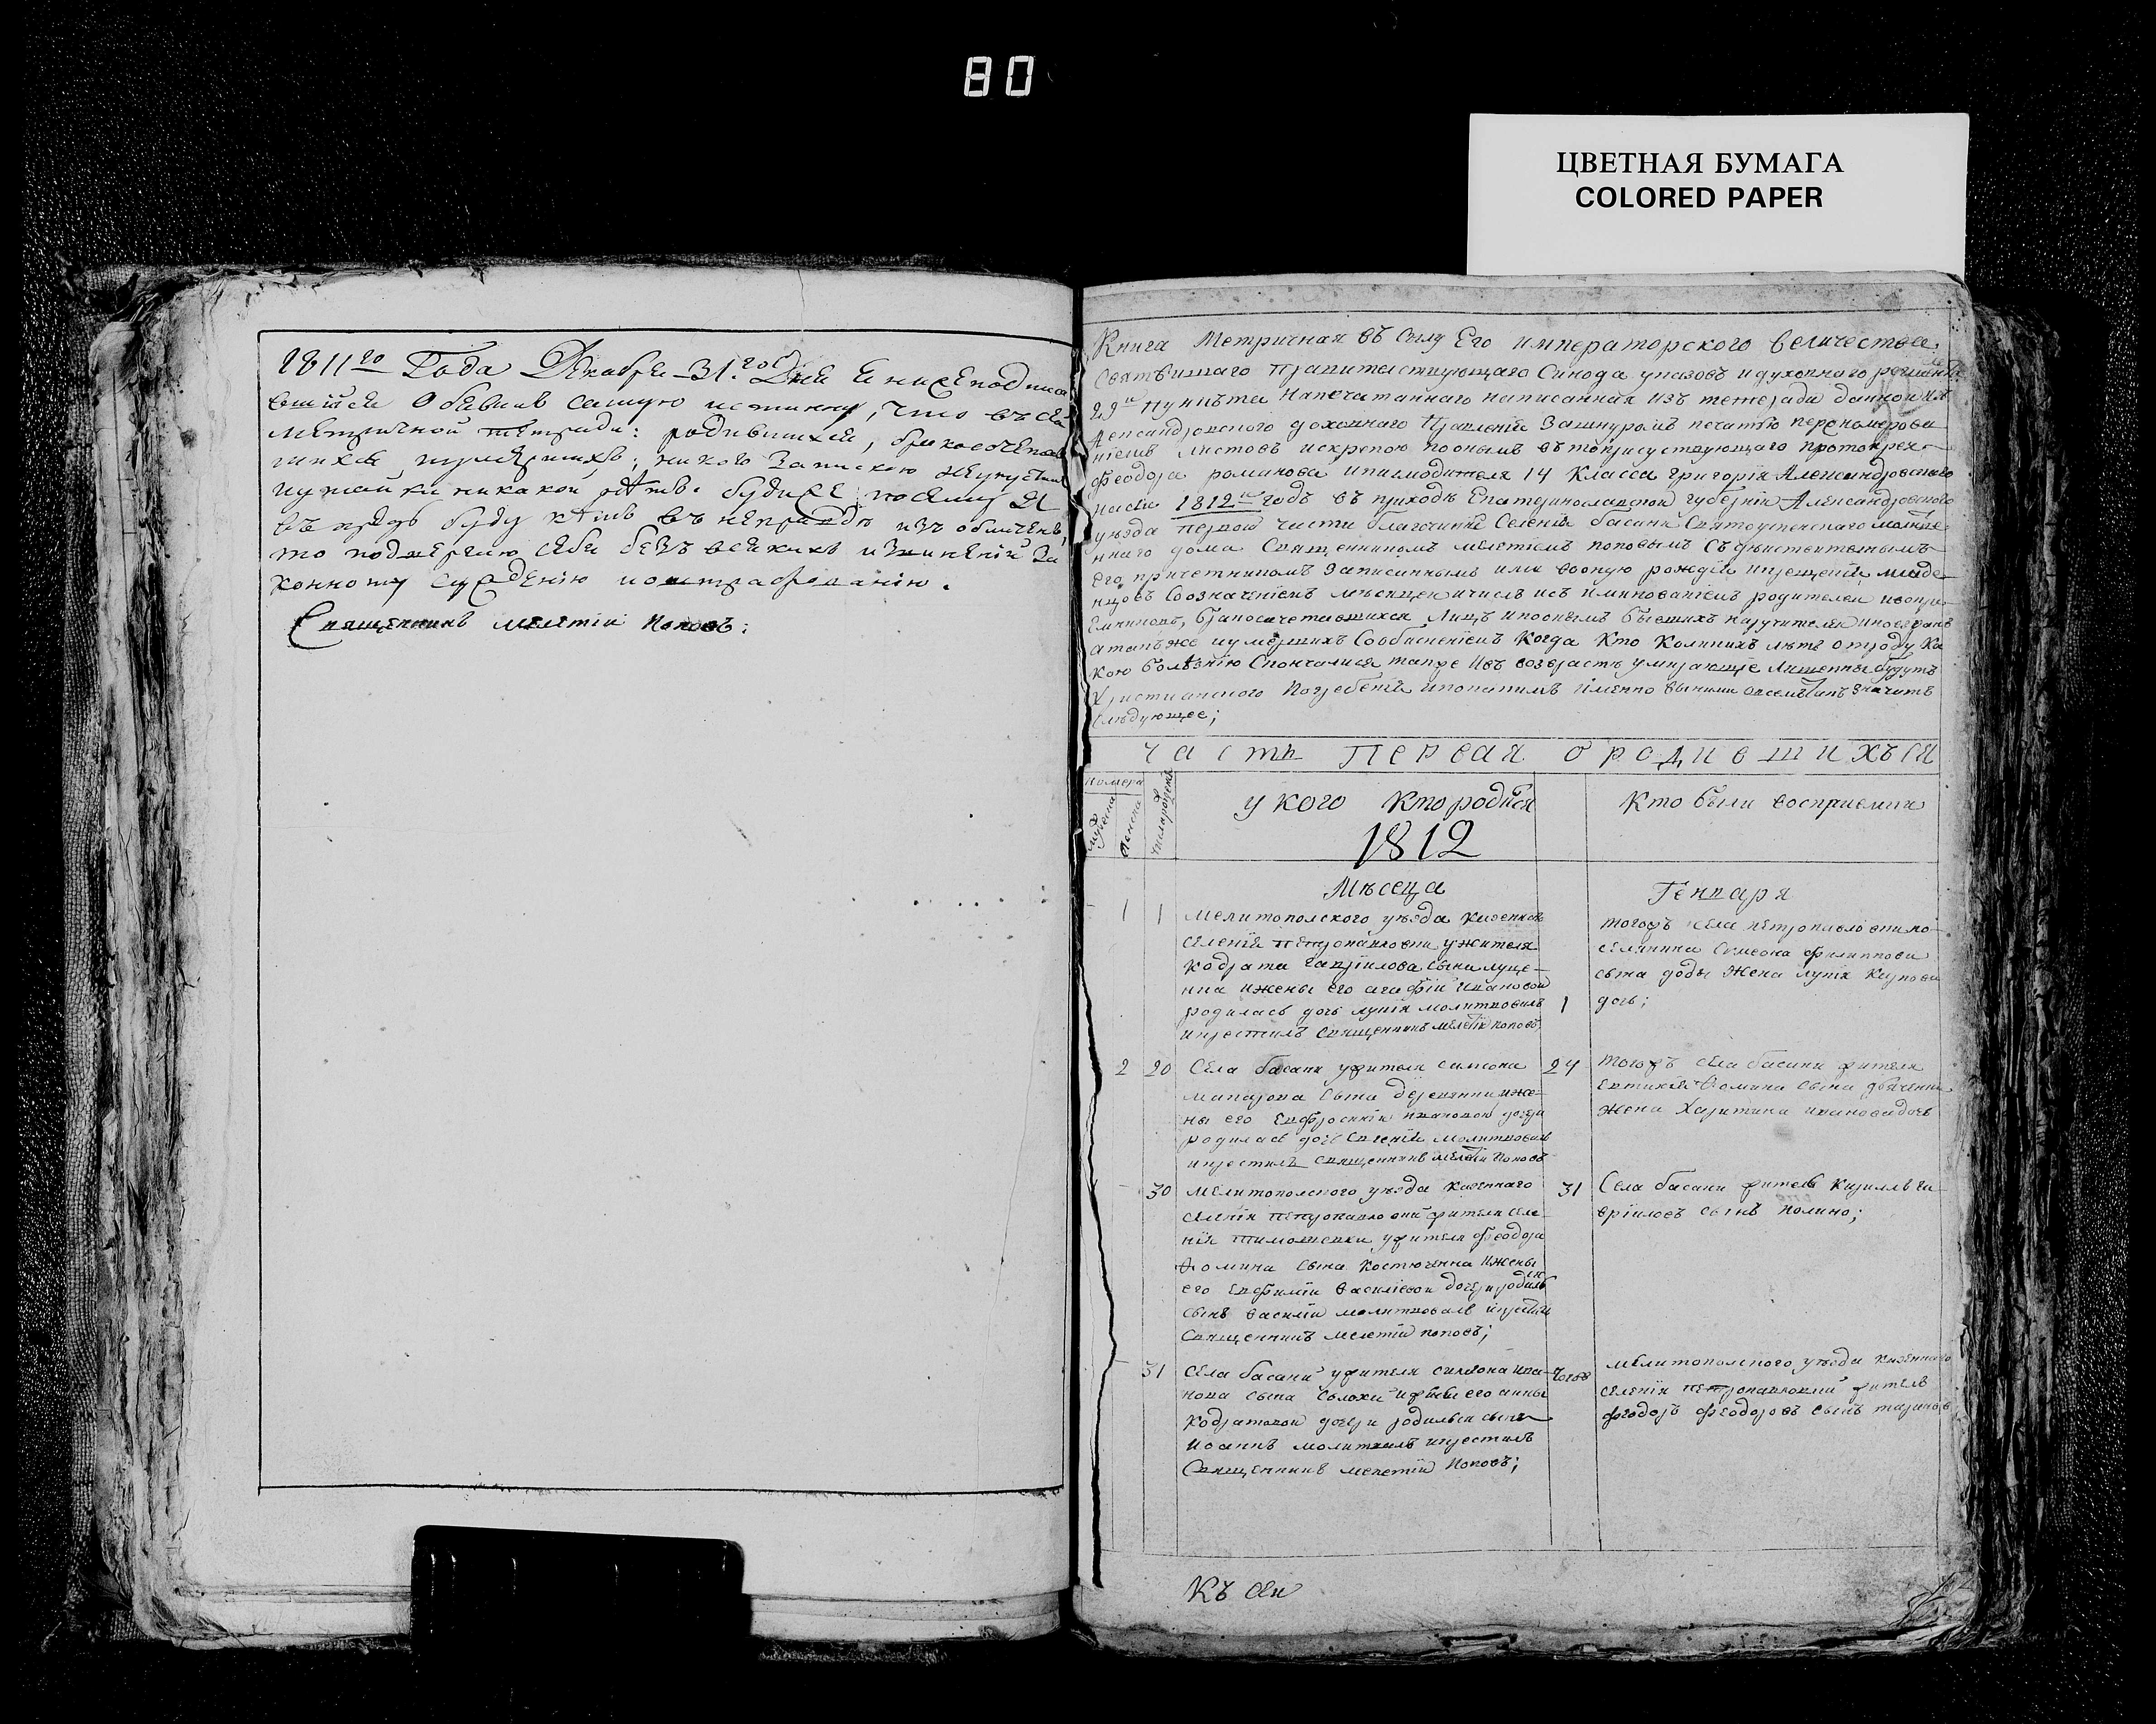 80
ЦВЕТНАЯ БУМАГА
COLORED PAPER
1811го Года Декабря 31го Дня Я нижеподписа
вшийся объявив самую истинну, что въ сей
метричной тетради: родившихся, бракосочетав
шихся, и умершихъ; никого запискою неупустилъ
и утайки никакой нетъ. будиже, посему я
въ предь буду кемъ въ неправде изъ обличенъ,
то подвергаю себя безъ всякихъ извинений за
конному суждению и оштрафованию.
Священникъ Мелетий Поповъ:
Книга Метричная въ силу Его императорского величества
Святейшаго Правительствующаго Синода указовъ и духовнаго регламента
29го Пункта напечатаннаго написанная изъ тетради данной изъ
Александровского духовнаго Правления за шнуромъ печатью перономерова
ниемъ листовъ и скрепою по онымъ въ то присутствующаго протоиерея
Феодора романова и писмоводителя 14 Класса Григория Александровского
насей 1812й годъ въ приходъ Екатеринославской губернии Александровского
уезда первой части благочиния Селения басани Святоуспенского молитве
ннаго дома Священникомъ мелетиемъ поповымъ съ действительнымъ
его причетникомъ записаннымъ ими въ оную рождении и крещении младе
нцовъ со означениемъ месяцей и числъ и съ имянованиемъ родителей и воспри
емниковъ, бракосочетавшихся лицъ и по онымъ бывшихъ поручителей
а также и умершихъ со объяснениемъ когда кто коликихъ летъ отроду ка
кою болезнию скончалися также и въ возрасте умирающие лишенны будутъ
Христианского погребения и по каким именно винам о всемъ какъ значитъ
Следующее;
часть Первая о родившихъся
номера
мужеска
женска
число рождения
у кого кто родился
1812
Кто были восприемники
Месеца
Генваря
1 1 Мелитополского уезда казенной
селения петропавловки у жителя
кодрата гаврилова сына луце-
нка и жены его агафии ивановой
родилась дочь лукия молитвовалъ
и крестилъ священникъ мелетий поповъ
1
тогожъ села петропавловки по
селянина симеона филиппова
сына доды жена лукия карпова
дочь;
2 20 Села басани у жителя самсона
макарова сына деревянки и же-
ны его Евфросинии ивановой дочери
родилась дочь евгения молитвовалъ
и крестилъ священникъ мелетий поповъ
24
тогожъ села басани жителя
евтихия фомина сына дяченка
жена харитина иванова дочь
30 Мелитополского уезда казеннаго
селения петропавловки жителя селе-
ния тимошевки, у жителя феодора
фомина сына костюченка и жены
его евфимии василиевой дочери родился
сынъ василий молитвовалъ и крестилъ
священникъ мелетий поповъ;
31
Села басани житель кирилъ га
вриловъ сынъ колино;
31 Села басани у жителя симеона ива-
нова сына солохи и жены его анны
кодратовой дочери родился сынъ
иоаннъ молитвовалъ и крестилъ
Священникъ мелетий поповъ;
мелитополского уезда казеннаго
селения петропавловки житель
феодоръ феодоровъ сынъ
Къ сей